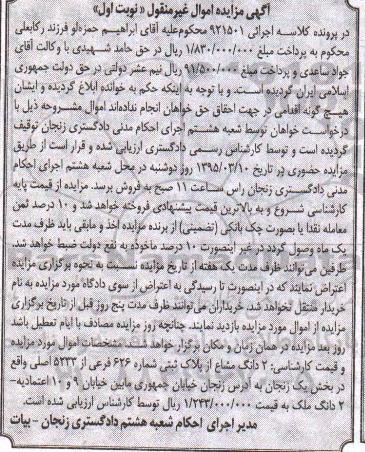 آگهی مزایده اموال غیرمنقول «نوبت اول»
در پرونده کلاسه اجرائی ۹۲۱۵۰۱ محکوم‌علیه آقای ابراهیم حمزه‌لو فرزند رکابعلی
محکوم به پرداخت مبلغ ۱/۸۳۰/۰۰۰/۰۰۰ ریال در حق حامد شهیدی با وکالت آقای
جواد ساعدی و پرداخت مبلغ ۹۱/۵۰۰/۰۰۰ ریال نیم عشر دولتی در حق دولت جمهوری
اسلامی ایران گردیده است. و با توجه به اینکه حکم به خوانده ابلاغ گردیده و ایشان
هیچ گونه اقدامی در جهت احقاق حق خواهان انجام نداده‌اند اموال مشروحه ذیل با
درخواست خواهان توسط شعبه هشتم اجرای احکام مدنی دادگستری زنجان توقیف
گردیده است و توسط کارشناس رسمی دادگستری ارزیابی شده و قرار است از طریق
مزایده حضوری در تاریخ ۱۳۹۵/۰۳/۱۰ روز دوشنبه در محل شعبه هشتم اجرای احکام
مدنی دادگستری زنجان راس ساعت ۱۱ صبح به فروش برسد. مزایده از قیمت پایه
کارشناسی شروع و به بالاترین قیمت پیشنهادی فروخته خواهد شد و ۱۰ درصد ثمن
معامله نقدا یا بصورت چک بانکی (تضمینی) از برنده مزایده اخذ و مابقی باید ظرف مدت
یک ماه وصول گردد در غیر اینصورت ۱۰ درصد ماخوذه به نفع دولت ضبط خواهد شد.
طرفین می‌توانند ظرف مدت یک هفته از تاریخ مزایده نسبت به نحوه برگزاری مزایده
اعتراض نمایند که در اینصورت تا رسیدگی به اعتراض از سوی دادگاه مورد مزایده به نام
خریدار منتقل نخواهد شد. خریداران می‌توانند ظرف مدت پنج روز قبل از تاریخ برگزاری
مزایده از اموال مورد مزایده بازدید نمایند. چنانچه روز مزایده مصادف با ایام تعطیل باشد
روز بعد مزایده در همان زمان و مکان برگزار خواهد شد. مشخصات اموال مورد مزایده
و قیمت کارشناسی: ۲ دانگ مشاع از پلاک ثبتی شماره ۶۲۶ فرعی از ۵۲۳۳ اصلی واقع
در بخش یک زنجان به آدرس زنجان خیابان جمهوری مابین خیابان ۹ و ۱۰ اعتمادیه-
۲ دانگ ملک به قیمت ۱/۲۴۳/۰۰۰/۰۰۰ ریال توسط کارشناس ارزیابی شده است.
مدیر اجرای احکام شعبه هشتم دادگستری زنجان - بیات